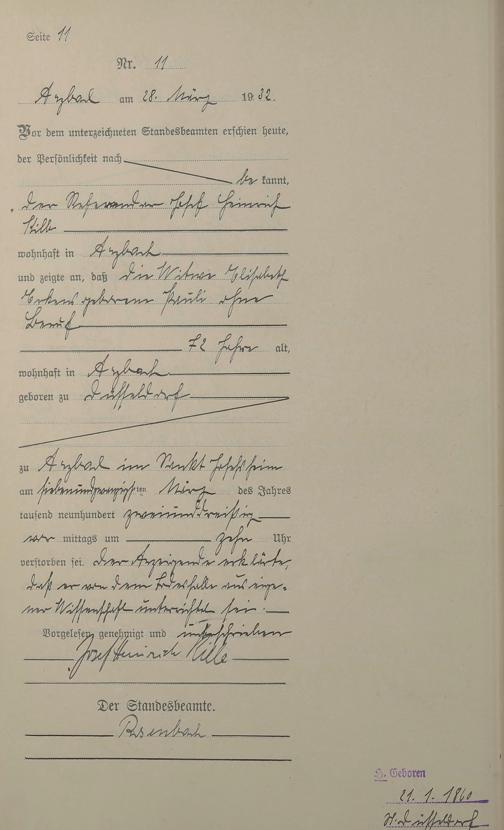 Seite 11
Nr. 11
Arzbach am 28. März 1932.
Vor dem unterzeichneten Standesbeamten erschien heute,
der Persönlichkeit nach
be kannt,
der Josef Heinrich
Hille
wohnhaft in Arzbach
und zeigte an, daß die Witwe Elisabeth
geborene Pauli ohne
Beruf
72 Jahre alt,
wohnhaft in Arzbach
geboren zu Düsseldorf
zu Arzbach im Sankt Josefsheim
am siebenundzwanzigsten März des Jahres
tausend neunhundert zweiunddreißig
vor mittags um zehn Uhr
verstorben sei. Der Anzeigende erklärte,
daß er von dem Todesfalle aus eige-
ner Wissenschaft unterrichtet sei.
Vorgelesen, genehmigt und unterschrieben
Josef Heinrich Hille
Der Standesbeamte.
Rosenbach
Geboren
21. 1. 1860
Düsseldorf